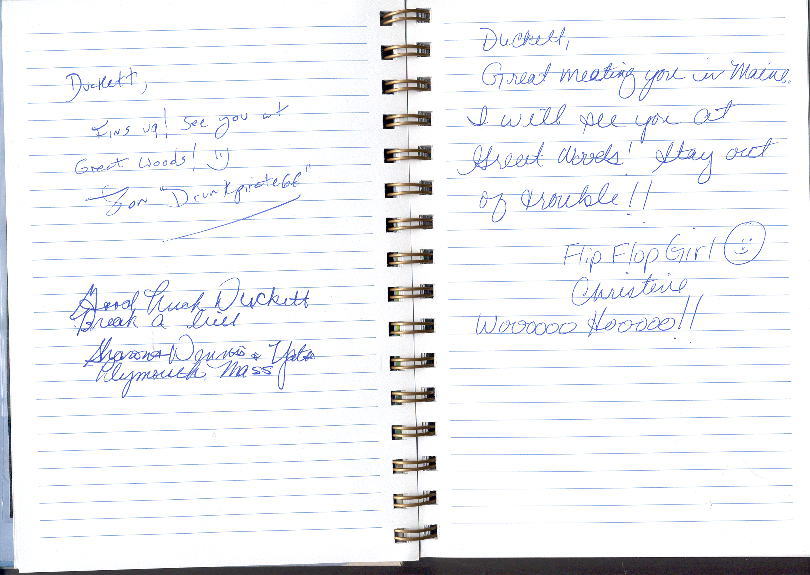 Duckett,
Fins up! See you at
Great Woods! :)
"Drunkpirate66"
Good Luck Duckett
Break a bill
Sharon Dennis &
Plymouth Mass
Duckett,
Great meating you in Maine.
I will see you at
Great Woods! Stay out
of trouble!!
Flip Flop Girl
Christine
Wooooo Hooooo!!